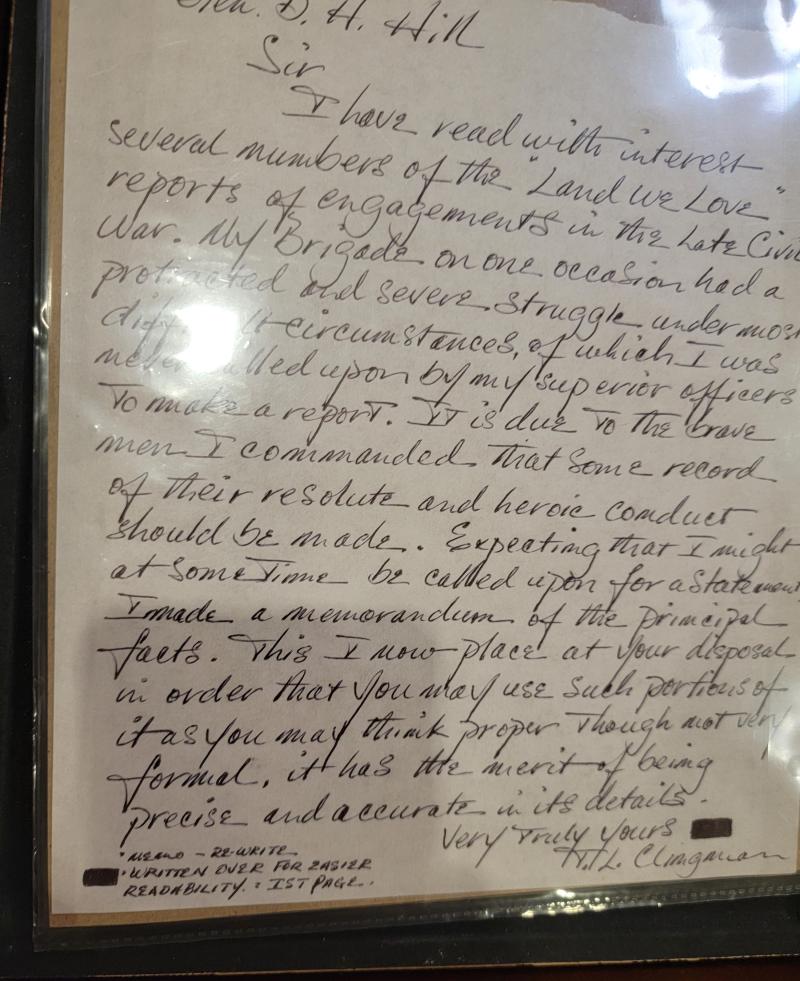 Gen. D. H. Hill
Sir
I have read with interest
several numbers of the "Land we Love"
reports of engagements in the Late Civil
War. My Brigade on one occasion had a
protracted and severe struggle under most
difficult circumstances, of which I was
never called upon by my superior officers
To make a report. It is due To the brave
men I commanded that some record
of their resolute and heroic conduct
should be made. Expecting that I might
at some Time be called upon for a statement
I made a memorandum of the principal
facts. This I now place at your disposal
in order that you may use such portions of
it as you may think proper Though not very
formal, it has the merit of being
precise and accurate in its details.
Very Truly yours
T.L. Clingman
• MEMO - RE-WRITE
• WRITTEN OVER FOR EASIER
READABILITY. : 1ST PAGE.